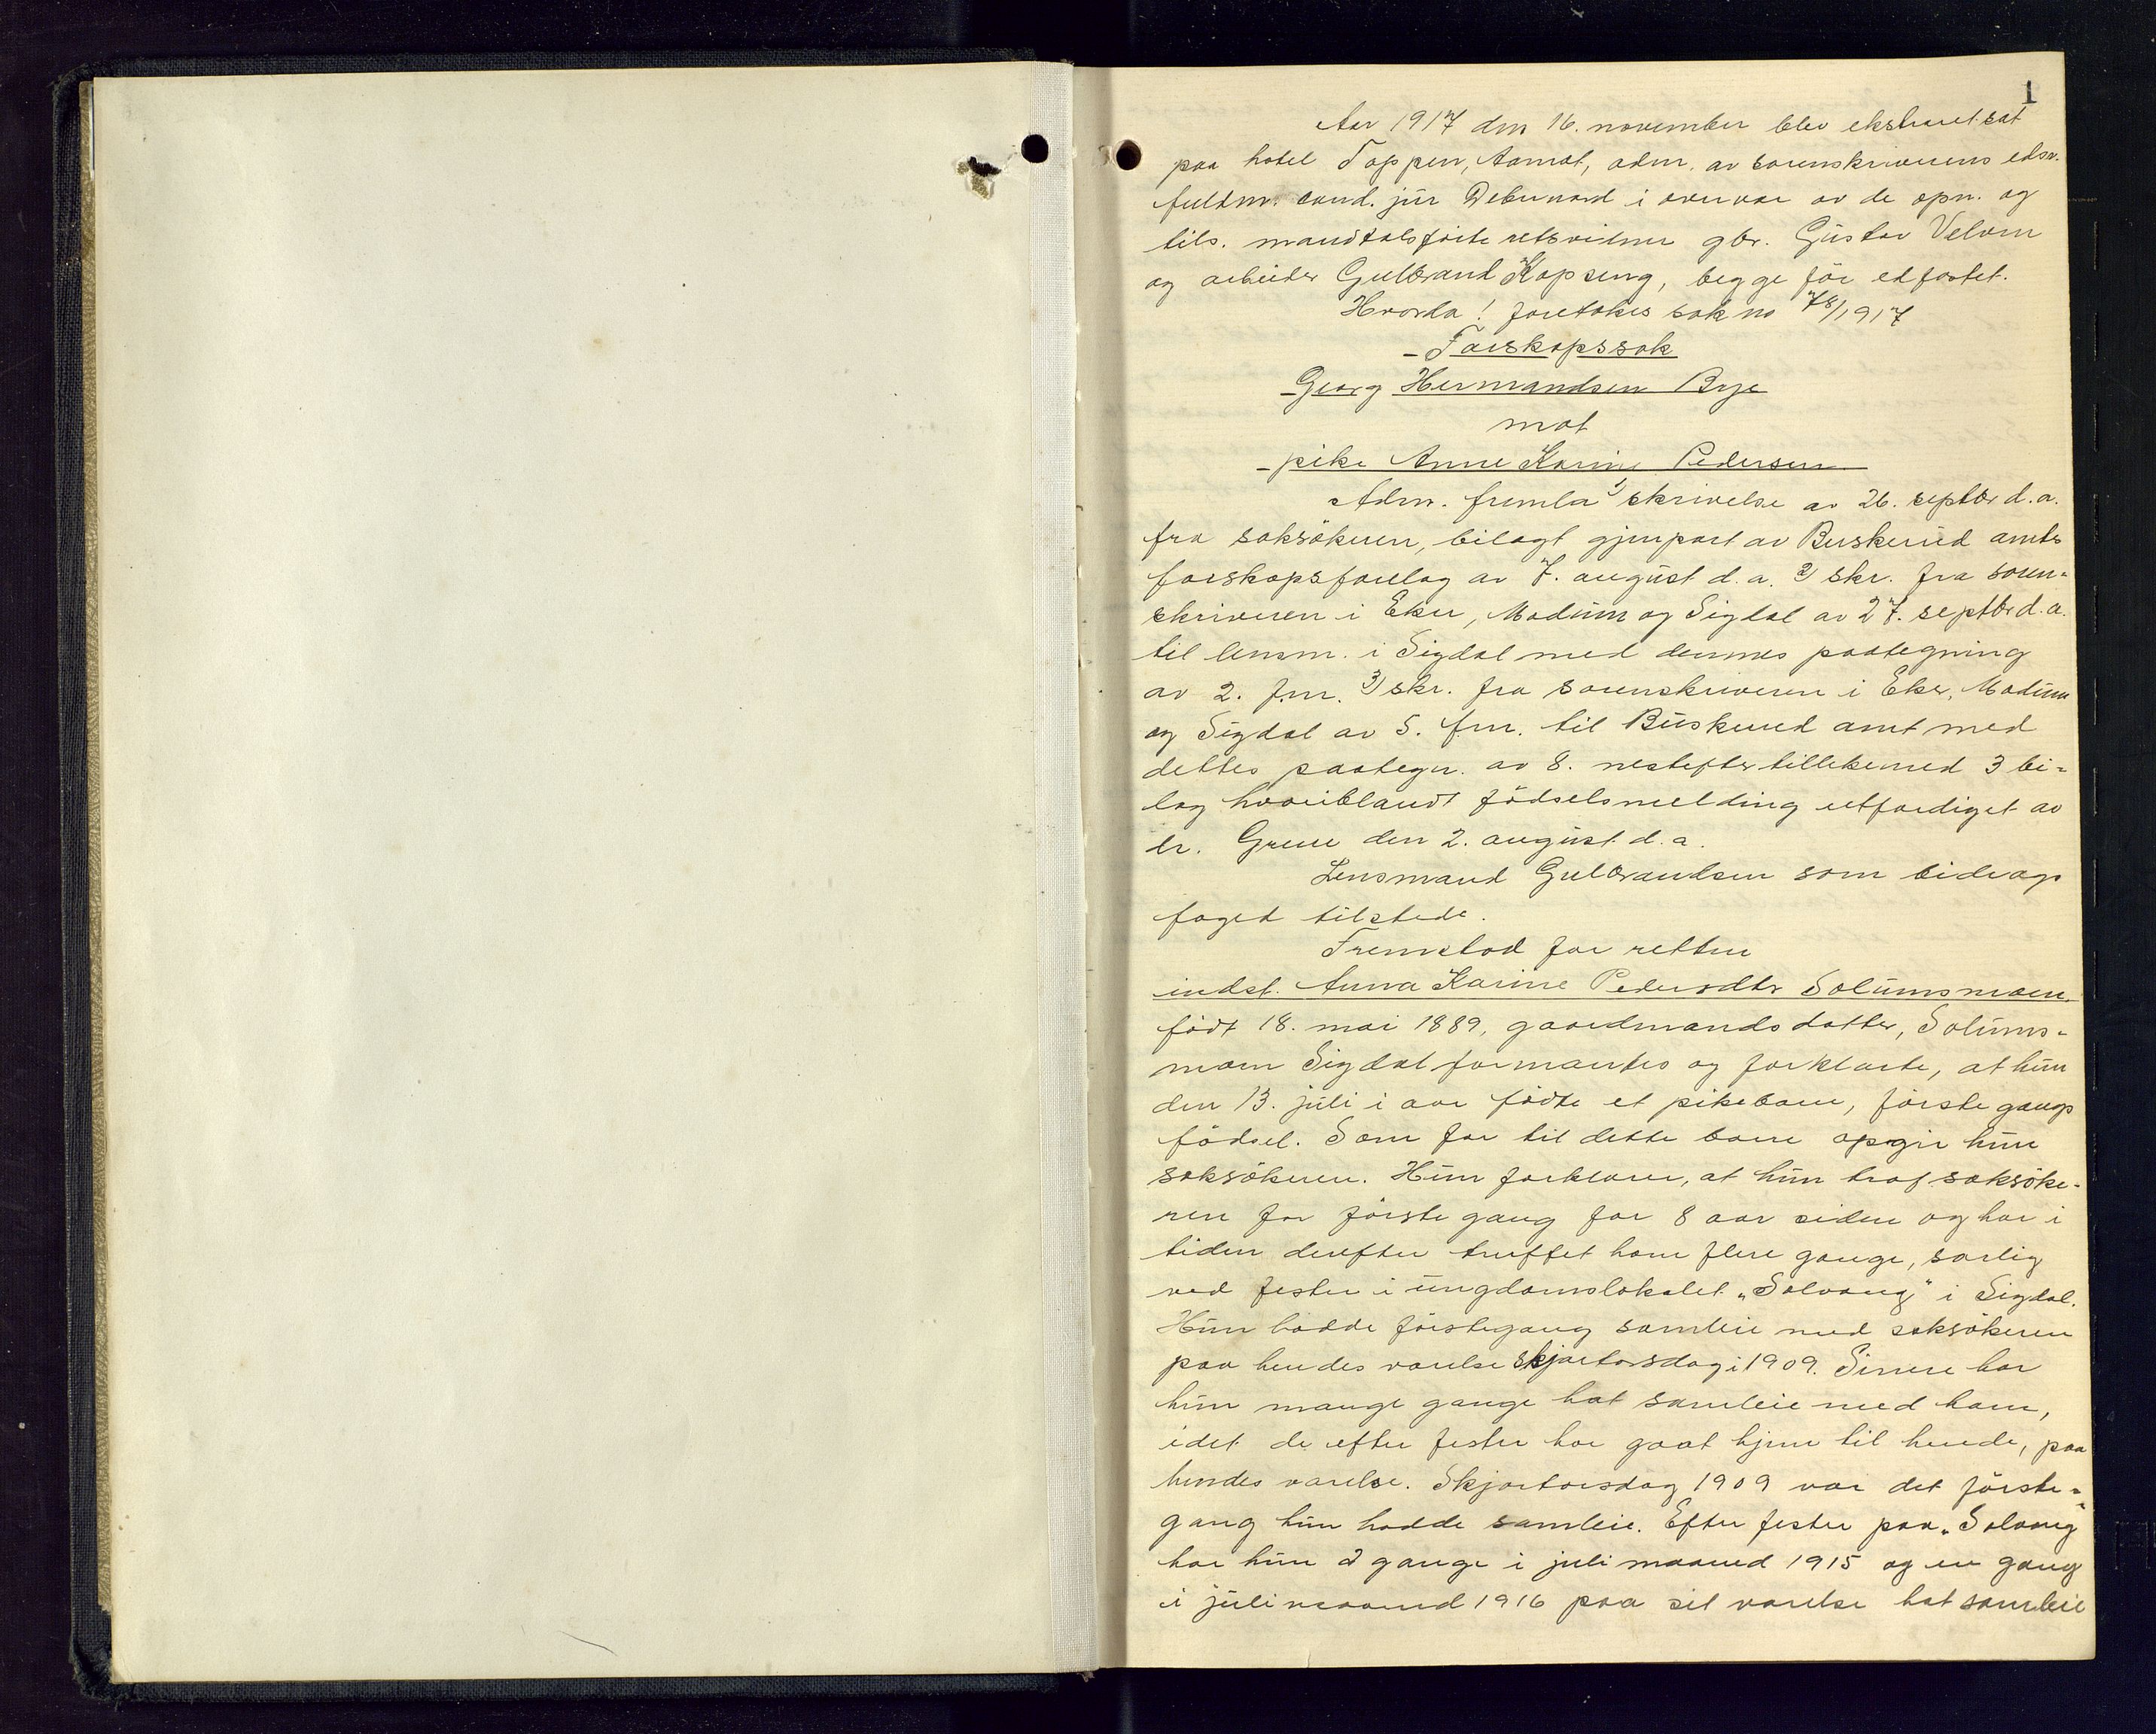 1
Aar 1917 den 16. november blev ekstraret sat
paa hotel Toppen, Aamot, adm. av sorenskriverens edsv.
fuldm. cand. jur i overvær av de opn. og
tils. mandtalsførte retsvidner gbr. Gustav Velem
og arbeider Gulbrand Kopseng, begge før edfæstet.
Hvorda! foretokes sak no 78/1917
- Farskapssak
- Georg Hermandsen Bye
mot
- pike Anne Karine Pedersen
Adm. fremla 1) skrivelse av 26. septbr d.a.
fra saksøkeren, bilagt gjenpart av Buskerud amts
farskapsforelæg av 7. august d.a. 2) skr. fra soren-
skriveren i Eker, Modum og Sigdal av 27. septbr d.a.
til lensm. i Sigdal med dennes paategning
av 2. f.m. 3) skr. fra sorenskriveren i Eker, Modum
og Sigdal av 5. f.m. til Buskerud amt med
dettes paategn. av 8. nestefter tillikemed 3 bi-
lag hvoriblandt fødselsmelding utfærdiget av
dr. Greve den 2. august d.a.
Lensmand Gulbrandsen som bidrags
foged tilstede.
Fremstod for retten
indst. Anna Karine Pedersdtr Solumsmoen.
født 18. mai 1889, gaardmandsdatter, Solums-
moen Sigdal formantes og forklarte, at hun
den 13. juli i aar fødte et pikebarn, første gangs
fødsel. Som far til dette barn opgir hun
saksøkeren. Hun forklarer, at hun traf saksøke-
ren for første gang for 8 aar siden og har i
tiden derefter truffet ham flere gange, særlig
ved fester i ungdomslokalet "Solvang" i Sigdal.
Hun hadde førstegang samleie med saksøkeren
paa hendes værelse Skjærtorsdag i 1909. Senere har
hun mange gange hat samleie med ham,
idet de efter fester har gaat hjem til hende, paa
hendes værelse. Skjærtorsdag 1909 var det første-
gang hun hadde samleie. Efter fester paa "Solvang"
har hun 2 gange i juli maaned 1915 og en gang
i juli maaned 1916 paa sit værelse hat samleie